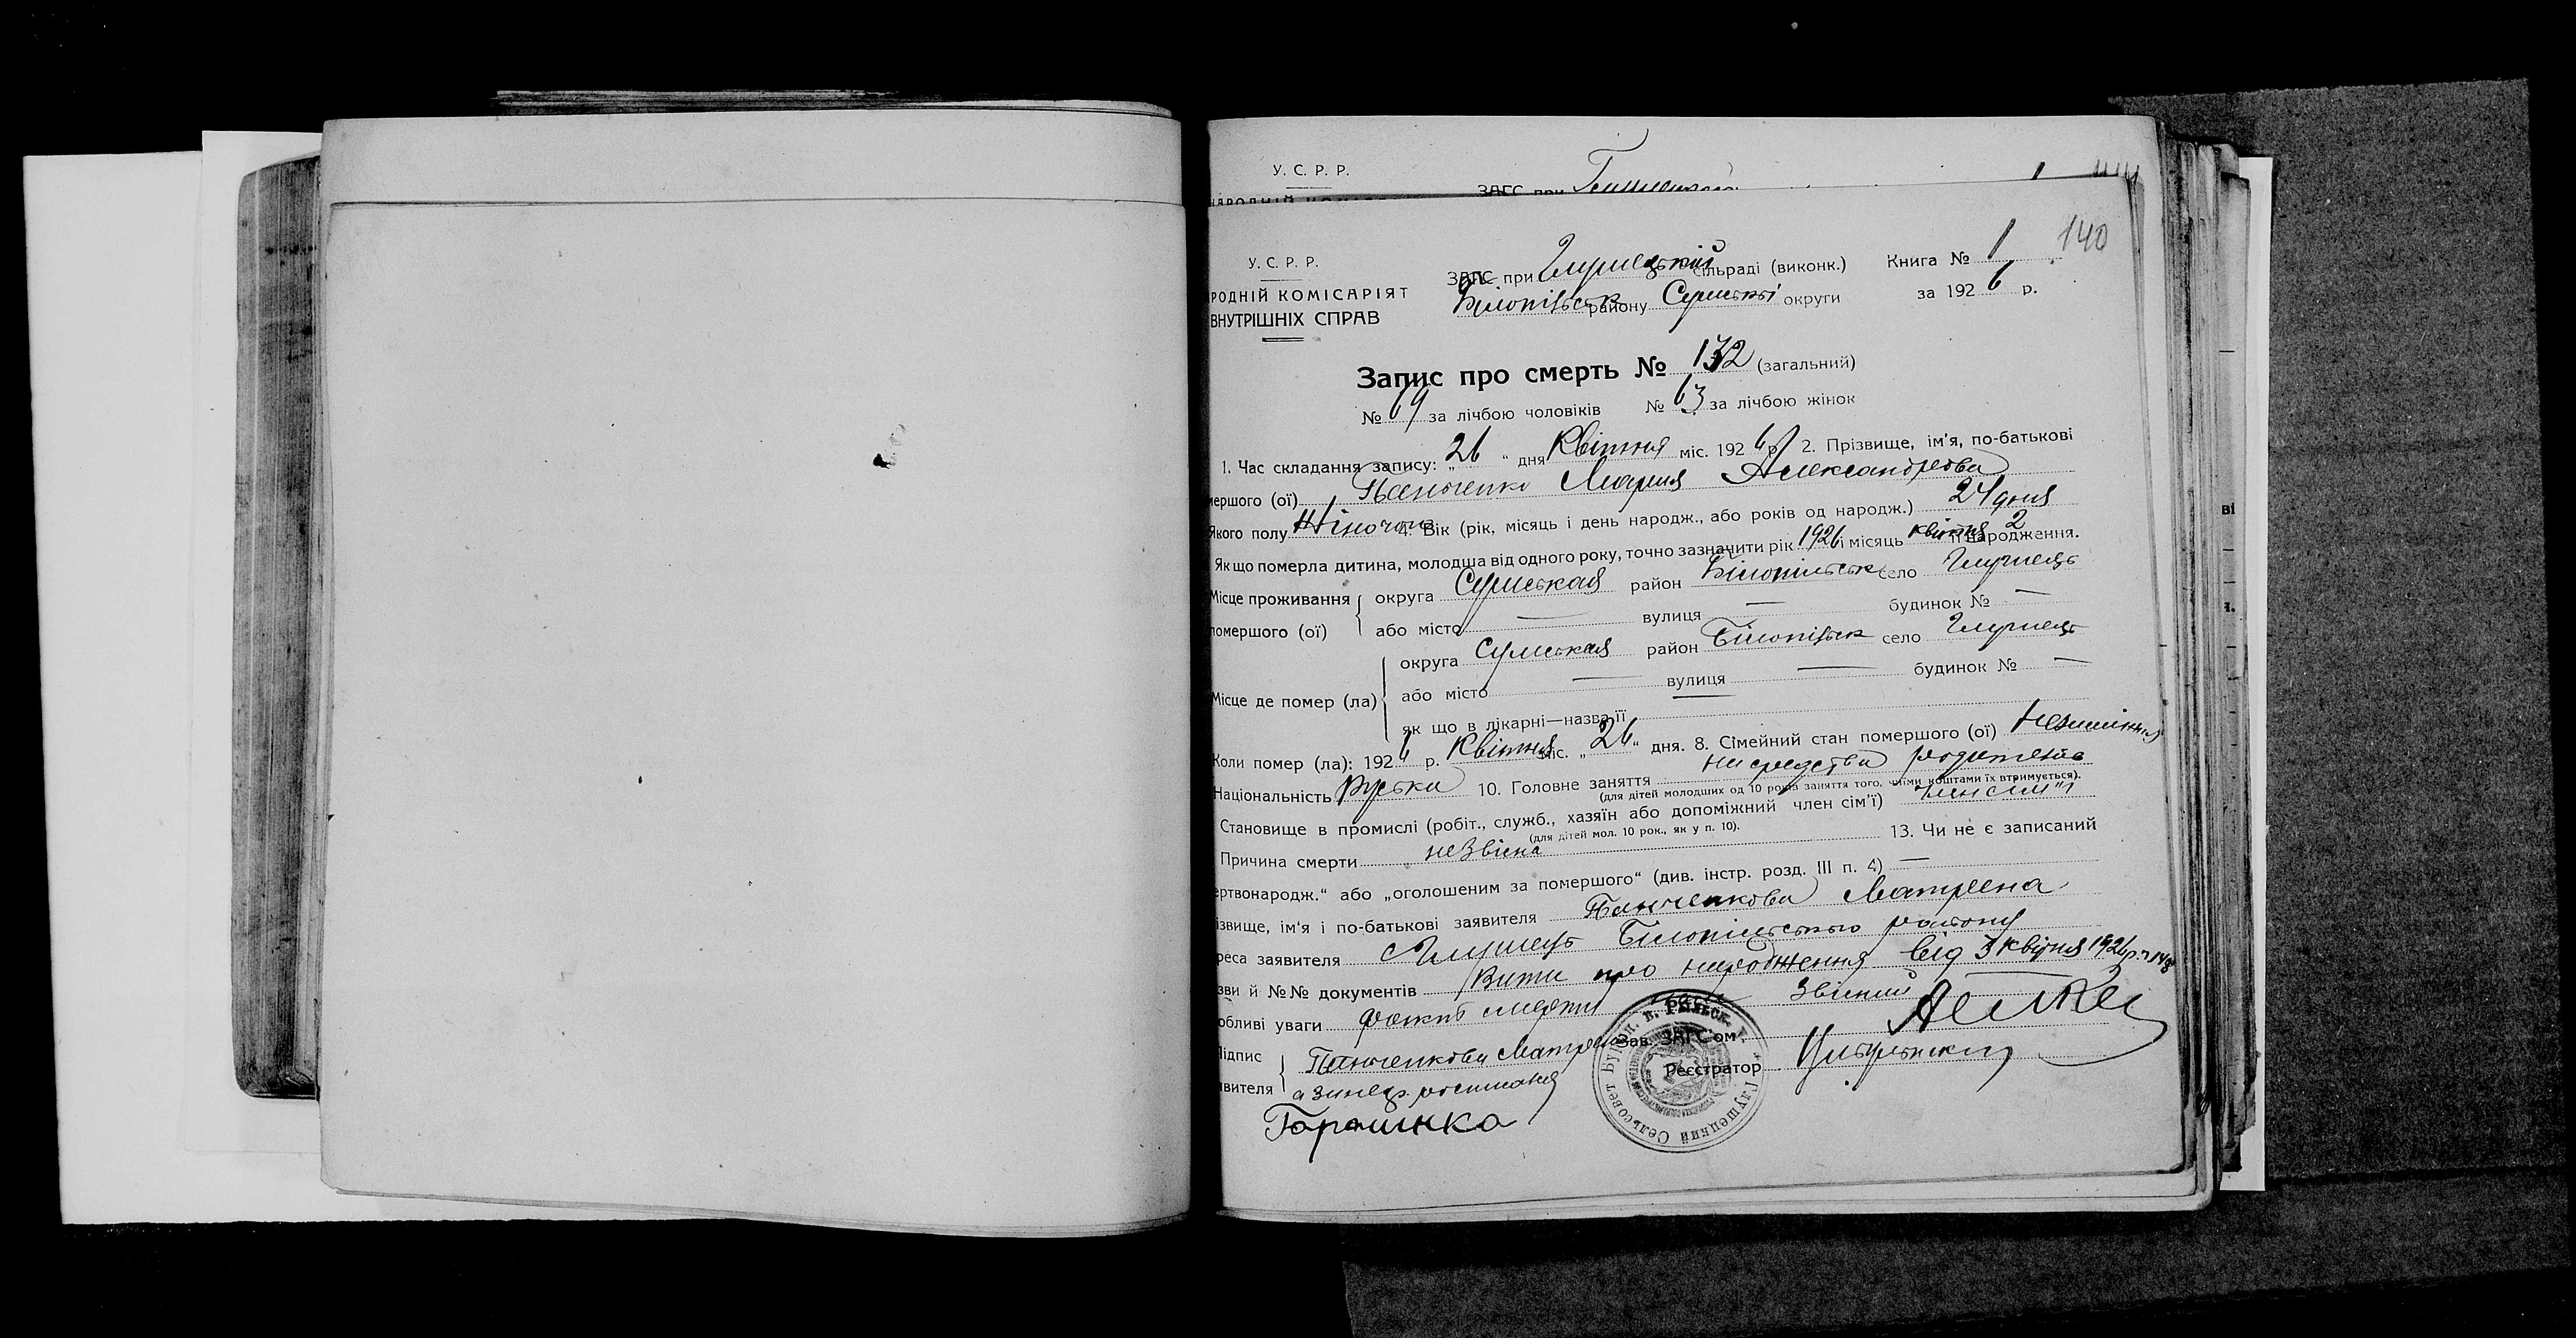 У. С. Р. Р.
ЗАГС при
У. С. Р. Р.
РОДНІЙ КОМІСАРІЯТ
ВНУТРІШНІХ СПРАВ
ЗАГС при Глушецький сільраді (виконк.) Книга № 1 140
Білопільськ району Сумської округи за 1926 р.
Запис про смерть № 132 (загальний)
№ 69 за лічбою чоловіків № 63 за лічбою жінок
1. Час складання запису: „26“ дня Квітня міс. 1926 р. 2. Прізвище, ім'я, по-батькові
мершого (ої) Панченко Мария Александрова
Якого полу Жіночого 4. Вік (рік, місяць і день народж., або років од народж.) 24 дня
Як що померла дитина, молодша від одного року, точно зазначити рік 1926 і місяць квітня 2 її народження.
Місце проживання округа Сумськая район Білопільськ село Глушець
помершого (ої) або місто — вулиця — будинок № —
округа Сумськая район Білопільськ село Глушець
Місце де помер (ла) або місто — вулиця — будинок № —
як що в лікарні—назва її —
Коли помер (ла): 1926 р. Квітня міс. „26“ дня. 8. Сімейний стан помершого (ої)
Національність Руська 10. Головне заняття на средства родителів
(для дітей молодших од 10 років заняття того, чиїми коштами їх втримується).
Становище в промислі (робіт., служб., хазяїн або допоміжний член сім'ї) член сим"ї
(для дітей мол. 10 рок., як у п. 10).
Причина смерти незвісна 13. Чи не є записаний
ертвонародж.“ або „оголошеним за помершого“ (див. інстр. розд. III п. 4) —
ізвище, ім'я і по-батькові заявителя Панченкова Матрена
реса заявителя Глушець Білопільського району
зви й №№ документів Витяг про народження від 3 квітня 1926 р.
обливі уваги факт смерти звісний
Підпис Панченкова Матрена Зав. ЗАГС'ом
явителя а за неї росписався Реєстратор Цибульский
Горошнка
Глушецкий Сельсовет Бурын. в. Рыльск. у.